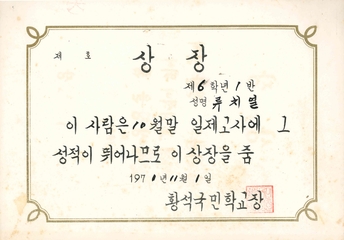 제 호
상장
제6학년 1반
성명 류치열
이 사람은 10월말 일제고사에 그
성적이 뛰어나므로 이 상장을 줌
1970년 11월 1일
황석국민학교장